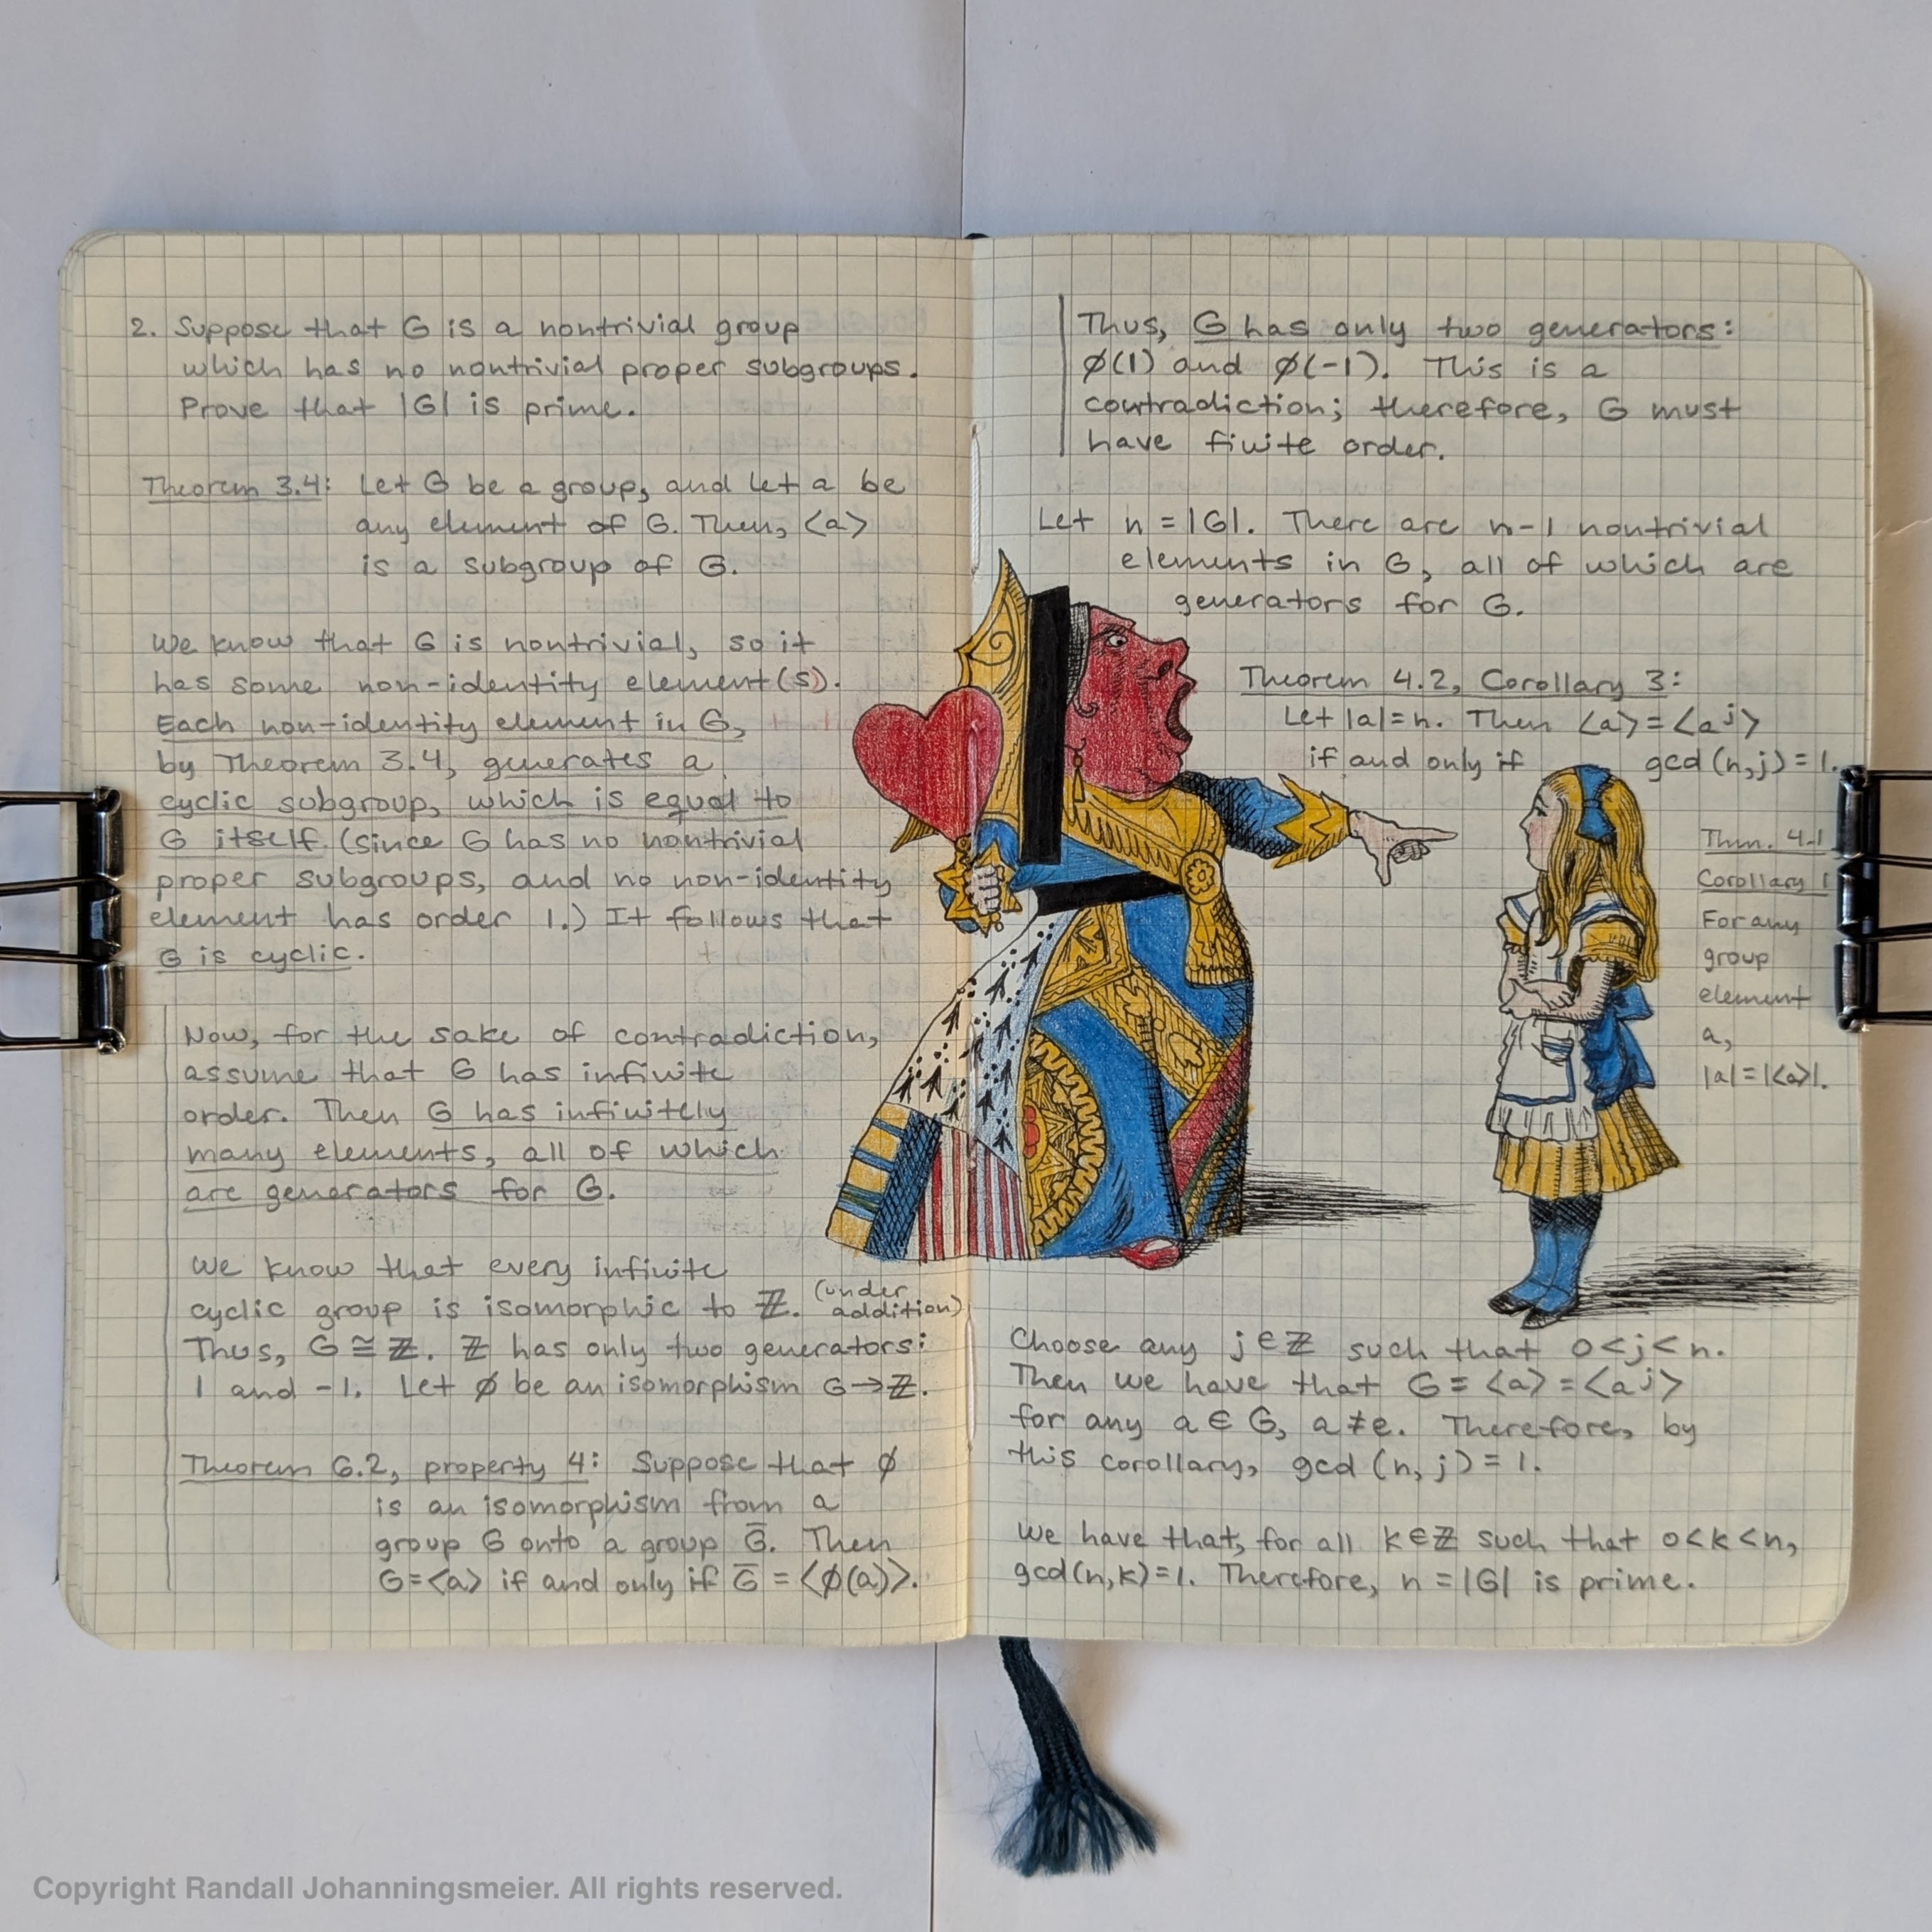 2. Suppose that G is a nontrivial group
which has no nontrivial proper subgroups.
Prove that |G| is prime.
Theorem 3.4: Let G be a group, and let a be
any element of G. Then, ⟨a⟩
is a subgroup of G.
We know that G is nontrivial, so it
has some non-identity element(s).
Each non-identity element in G,
by Theorem 3.4, generates a
cyclic subgroup, which is equal to
G itself. (Since G has no nontrivial
proper subgroups, and no non-identity
element has order 1.) It follows that
G is cyclic.
Now, for the sake of contradiction,
assume that G has infinite
order. Then G has infinitely
many elements, all of which
are generators for G.
We know that every infinite
cyclic group is isomorphic to ℤ. (under addition)
Thus, G ≅ ℤ. ℤ has only two generators:
1 and -1. Let ϕ be an isomorphism G→ℤ.
Theorem 6.2, property 4: Suppose that ϕ
is an isomorphism from a
group G onto a group G̅. Then
G=⟨a⟩ if and only if G̅ = ⟨ϕ(a)⟩.
Thus, G has only two generators:
ϕ(1) and ϕ(-1). This is a
contradiction; therefore, G must
have finite order.
Let n = |G|. There are n-1 nontrivial
elements in G, all of which are
generators for G.
Theorem 4.2, Corollary 3:
Let |a|=n. Then ⟨a⟩ = ⟨aʲ⟩
if and only if gcd(n,j)=1.
Thm. 4.1
Corollary 1
For any
group
element
a,
|a|=|⟨a⟩|.
Choose any j∈ℤ such that 0<j<n.
Then we have that G = ⟨a⟩ = ⟨aʲ⟩
for any a ∈ G, a ≠ e. Therefore, by
this corollary, gcd (n, j) = 1.
We have that, for all k∈ℤ such that 0<k<n,
gcd(n,k)=1. Therefore, n = |G| is prime.
Copyright Randall Johanningsmeier. All rights reserved.